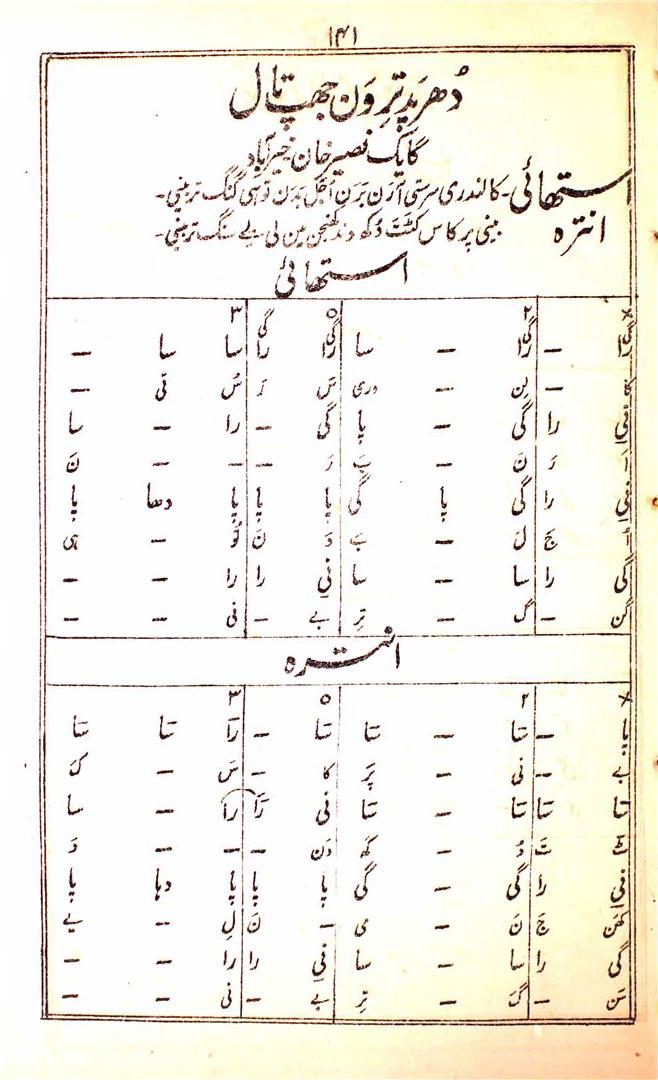 ۱۴۱
دُھرپَد تِروَن جھپ تال
گایک نصیر خان خیرآباد
استھائی - کالندری سرستی اَرَن بَرَن اُجَل بَدَن توسی گنگ تربینی -
انترہ بینی پرکاس کٹَتَ دُکھ دند بھنجن مین لی یے سنگ تربینی -
استھائی
× ۲ ۵ ۳
گا - را - سا را را سا سا -
- ن - دری سَ رَ سُ تی -
را گی - پا گی - را - سا
رَ ن - بَ رَ - - - نَ
را گی - پا پا پا پا دھا پا
جَ ل - بَ دَ نَ تو - ہی
گی را سا - سا نی را را - -
گن - گ - تِر بے - نی - -
انترہ
× ۲ ۵ ۳
پا - تا - تا تا - را تا تا
بے - نی - پَر کا - سَ - کَ
تا تا تا - تا نی را را - سا
ٹَ تَ دُ - کھ دَن - - - دَ
را گی - گی پا پا پا دہا پا
جَ نَ - می - نَ لِ - یے
گی را سا - سا نی را را - -
سَن - گ - تِر بے - نی - -